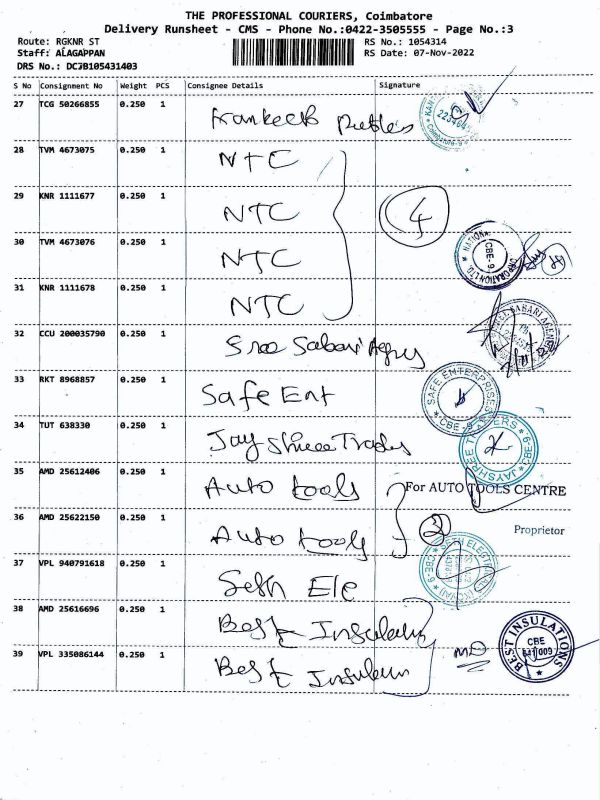 THE PROFESSIONAL COURIERS, Coimbatore
Delivery Runsheet - CMS - Phone No.:0422-3505555 - Page No.:3
Route: RGKNR ST RS No.: 1054314
Staff: ALAGAPPAN RS Date: 07-Nov-2022
DRS No.: DCJB105431403
S No Consignment No Weight PCS Consignee Details Signature
27 TCG 50266855 0.250 1
28 TVM 4673075 0.250 1 NTC
29 KNR 1111677 0.250 1 NTC 4
30 TVM 4673076 0.250 1 NTC
31 KNR 1111678 0.250 1 NTC
32 CCU 200035790 0.250 1 Sree Sabari
33 RKT 8968857 0.250 1 Safe Ent SAFE ENTERPRISES CBE-9
34 TUT 638330 0.250 1 Jay Shree Traders JAYSHREE TRADERS CBE-9
35 AMD 25612406 0.250 1 Auto tools For AUTO TOOLS CENTRE
36 AMD 25622150 0.250 1 Auto tools 2 Proprietor
37 VPL 940791618 0.250 1 Seth Ele
38 AMD 25616696 0.250 1 Best Insulation BEST INSULATIONS CBE
39 VPL 335086144 0.250 1 Best Insulation